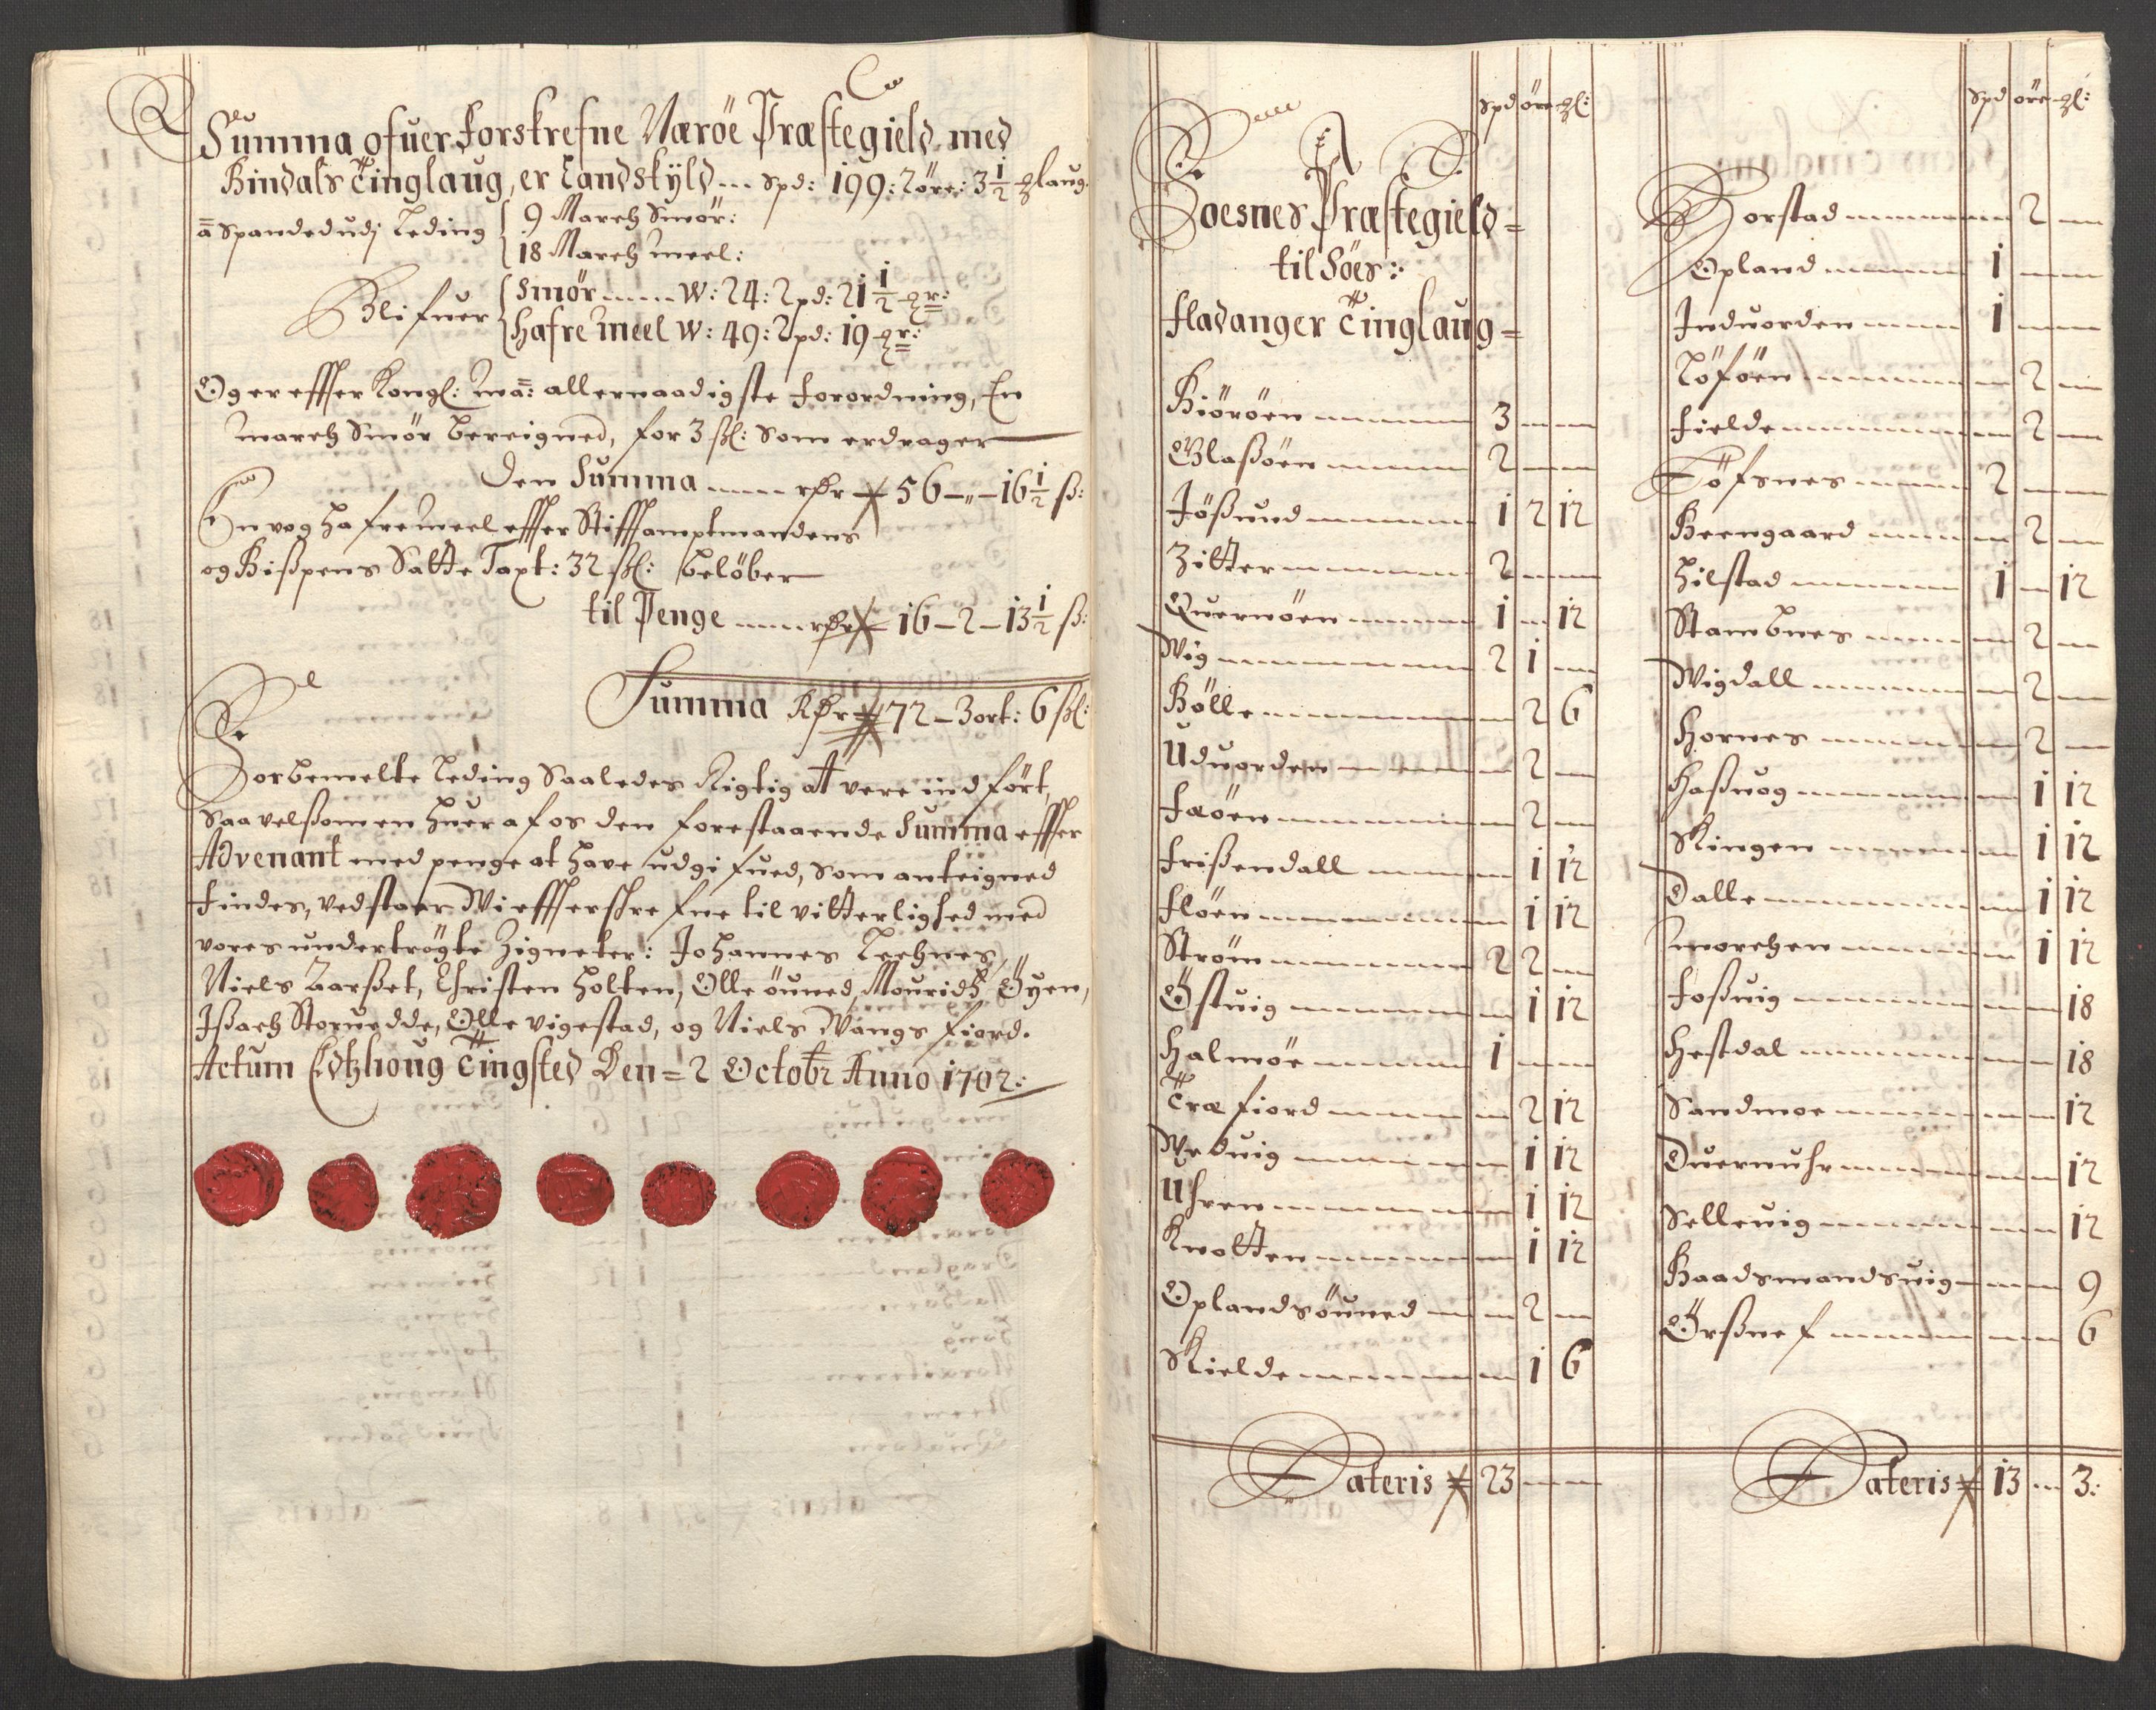 Summa ofuer Forskrefne Nærøe Præstegield med
Bindals Tinglaug, er Landskyld --- Spd: 199: 2 øre: 3 1/2 Mlaug
a Spandedudj Leding { 9 March Smør:
18 March meel:
Blifuer { Smør --- W: 24: 2 pd: 21 1/2 Mr:
Hafre Meel W: 49: 2 pd: 19 Mr:
Og er effter Kongl: Ma: allernaadigste Forordning, En
march Smør bereigned, for 3 ßl: Som erdrager
Den Summa --- rdr 56 - „ - 16 1/2 ß:
En vog Hafremeel effter Stifftamptmandens
og Bißpens Satte Taxt: 32 ßl: beløber
til Penge --- rdr 16 - 2 - 13 1/2 ß:
Summa Rdr 72 - 3 ort: 6 ßl:
Forbemelte Leding Saaledes Rigtig at vere ind ført,
Saavelsom en huer af os den forestaaende Summa effter
Advenant med penge at have udgifued, Som anteigned
Findes, vedstaar Wi effterskrefne til vitterlighed med
vores undertrøgte Zigneter: Johannes Leehnes,
Niels Aarßet, Christen Holten, Olle Øuned, Mouridß Øyen,
Ißach Storuedde, Olle Vigestad, og Niels Wangs fiord.
Actum Edtzhoug Tingsted Den = 2 Octobr Anno 1702:
Spd øre Ml:
Foesnes Præstegield =
til Søes:
Fladanger Tinglaug =
Kiørøen 3 - -
Glaßøen 2 - -
Jøßund 1 2 12
Zitter 2 - -
Quernøen 1 - 12
Wig 2 1 -
Bølle - 2 6
Uduorden - 2 -
Faøen - 2 -
Frißendall - 1 12
Fløen - 1 12
Strøm 2 2 -
Østuig - 1 12
Halmøe 1 - -
Træfiord - 2 12
Weduig - 1 12
Uhren - 1 12
Knotten - 1 12
Oplandsøuned - 2 -
Skielde - 1 6
Lateris 23 - -
Spd øre Ml:
Forstad - 2 -
Opland 1 - -
Induorden 1 - -
Løføen - 2 -
Fielde - 2 -
Tøfsnes 2 - -
Beengaard - 2 -
Hilstad 1 - 12
Stambnes - 2 -
Wigdall - 2 -
Hornes - 2 -
Haßuog - 1 12
Kingen - 1 12
Dalle - 1 12
morchen - 1 12
Foßuig - - 18
Hestdal - - 18
Sandmoe - - 12
Duernuhr - - 12
Selleuig - - 12
Baadsmandsuig - - 9
Ørßnef - - 6
Lateris 13 - 3: